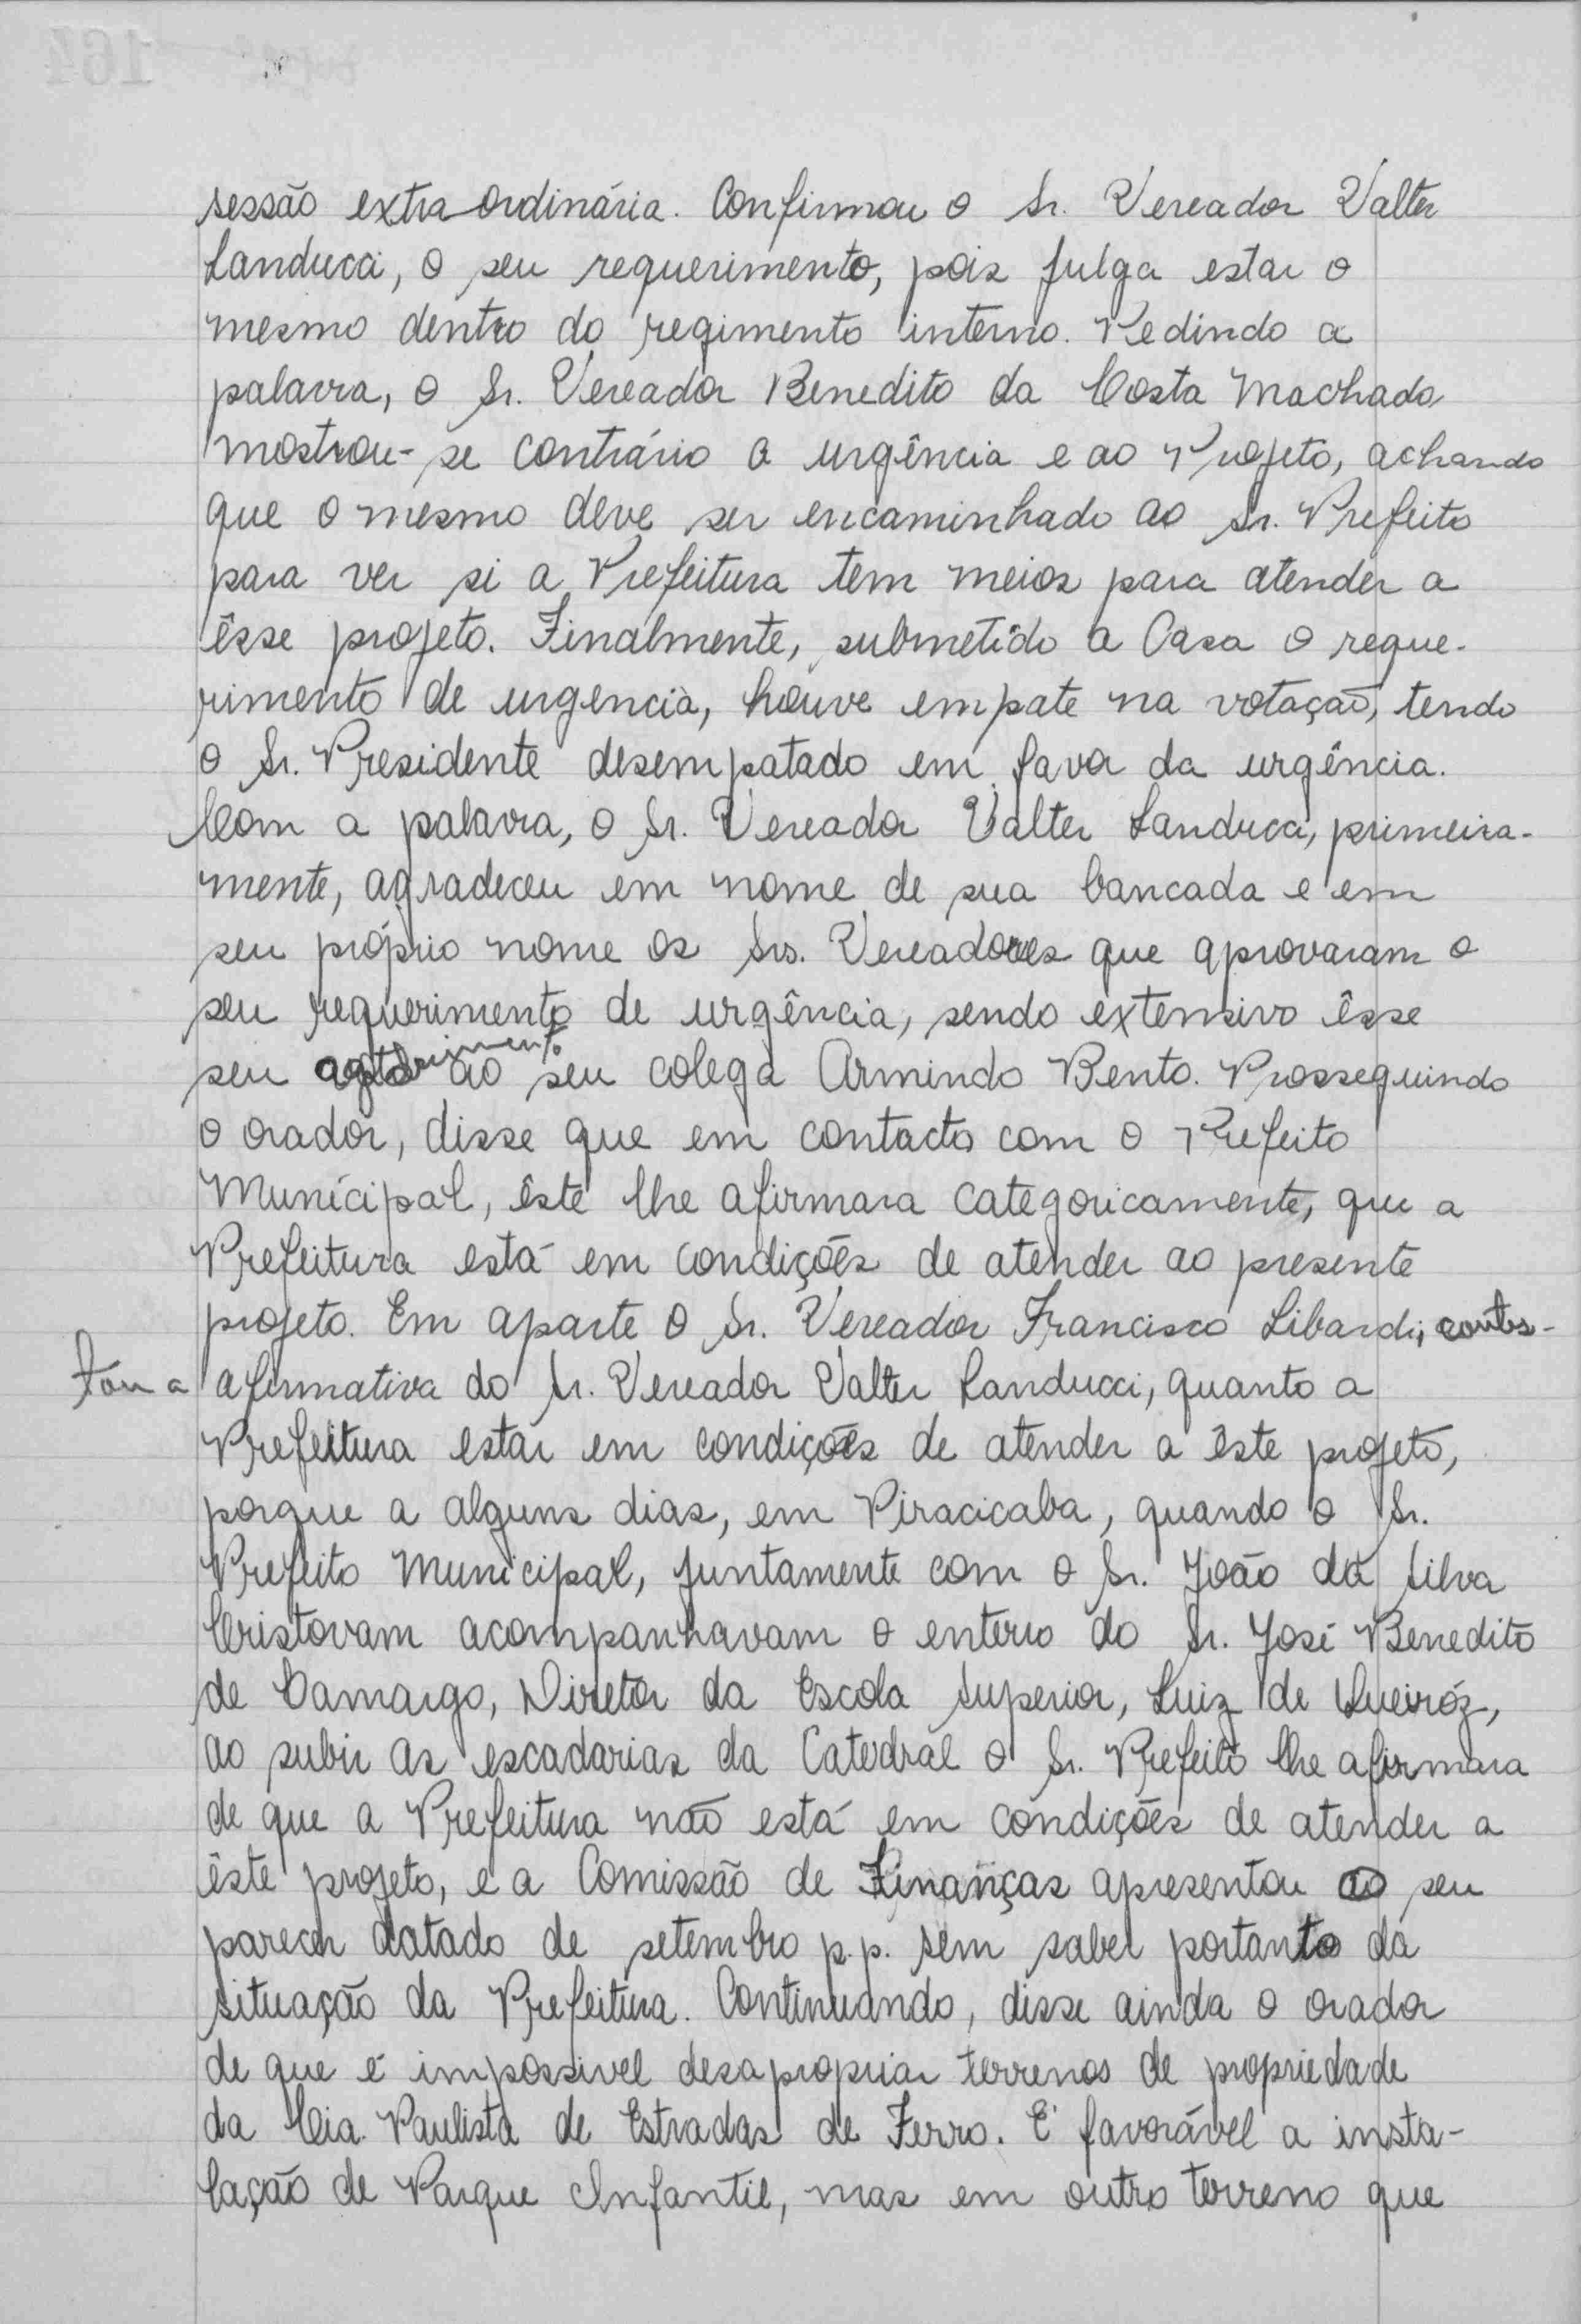 sessão extra ordinária. Confirmou o Sr. Vereador Valter
Landucci, o seu requerimento, pois julga estar o
mesmo dentro do regimento interno. Pedindo a
palavra, o Sr. Vereador Benedito da Costa Machado
mostrou-se contrário a urgência e ao Projeto, achando
que o mesmo deve ser encaminhado ao Sr. Prefeito
para ver si a Prefeitura tem meios para atender a
êsse projeto. Finalmente, submetido a Casa o reque-
rimento de urgencia, houve empate na votação, tendo
o Sr. Presidente desempatado em favor da urgência.
Com a palavra, o Sr. Vereador Valter Landucci, primeira-
mente, agradeceu em nome de sua bancada e em
seu próprio nome os Srs. Vereadores que aprovaram o
seu requerimento de urgência, sendo extensivo êsse
seu ao seu colega Armindo Bento. Prosseguindo
o orador, disse que em contacto com o Prefeito
Municipal, êste lhe afirmara categoricamente, que a
Prefeitura está em condições de atender ao presente
projeto. Em aparte o Sr. Vereador Francisco Libardi, contes-
tou a afirmativa do Sr. Vereador Valter Landucci, quanto a
Prefeitura estar em condições de atender a êste projeto,
porque a alguns dias, em Piracicaba, quando o Sr.
Prefeito Municipal, juntamente com o Sr. João da Silva
Cristovam acompanhavam o enterro do Sr. José Benedito
de Camargo, Diretor da Escola Superior, Luiz de Queiróz,
ao subir as escadarias da Catedral o Sr. Prefeito lhe afirmara
de que a Prefeitura não está em condições de atender a
êste projeto, e a Comissão de Finanças apresentou o seu
parecer datado de setembro p.p. sem saber portanto da
situação da Prefeitura. Continuando, disse ainda o orador
de que é impossivel desapropriar terrenos de propriedade
da Cia. Paulista de Estradas de Ferro. É favorável a insta-
lação de Parque Infantil, mas em outro terreno que